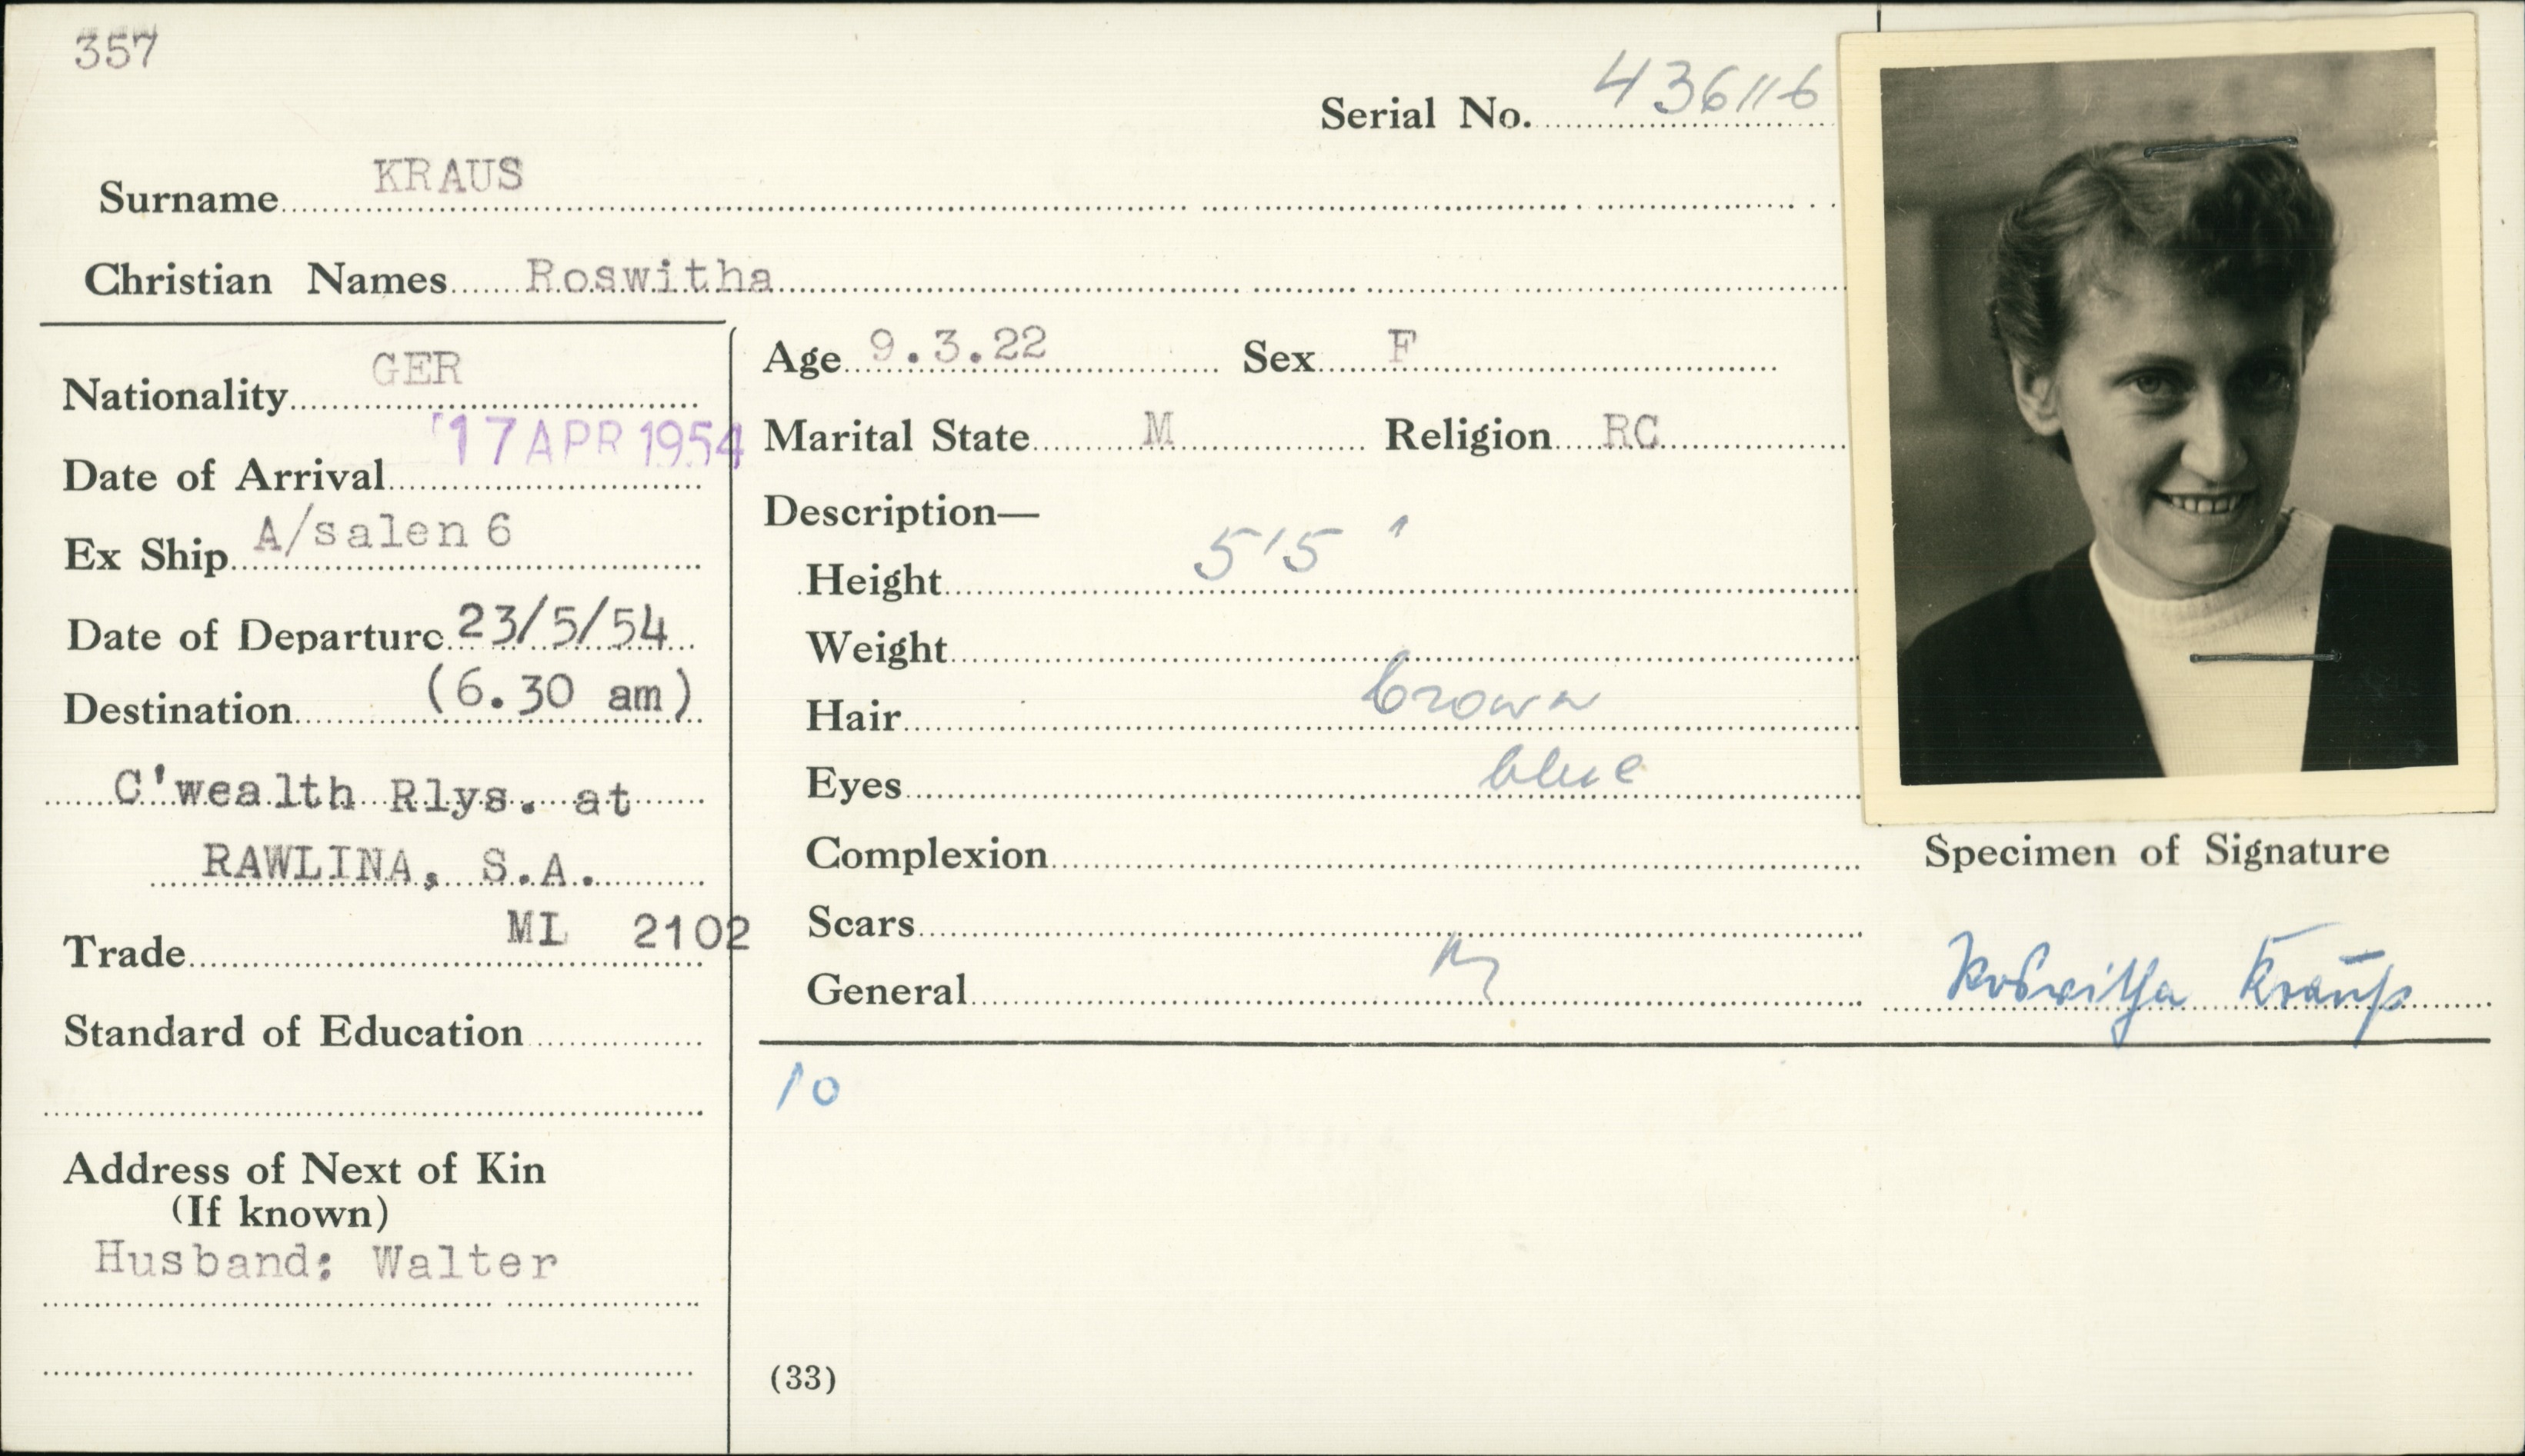 357
Serial No. 436116
Surname KRAUS
Christian Names Roswitha
Nationality GER
Date of Arrival 17 APR 1954
Ex Ship A/salen 6
Date of Departure 23/5/54
Destination (6.30 am)
C'wealth Rlys. at
RAWLINA, S.A.
Trade MI 2102
Standard of Education
Address of Next of Kin
(If known)
Husband: Walter
Age 9.3.22 Sex F
Marital State M Religion RC
Description—
Height 5'5"
Weight
Hair brown
Eyes blue
Complexion
Scars
General
10
(33)
Specimen of Signature
Roswitha Krauß